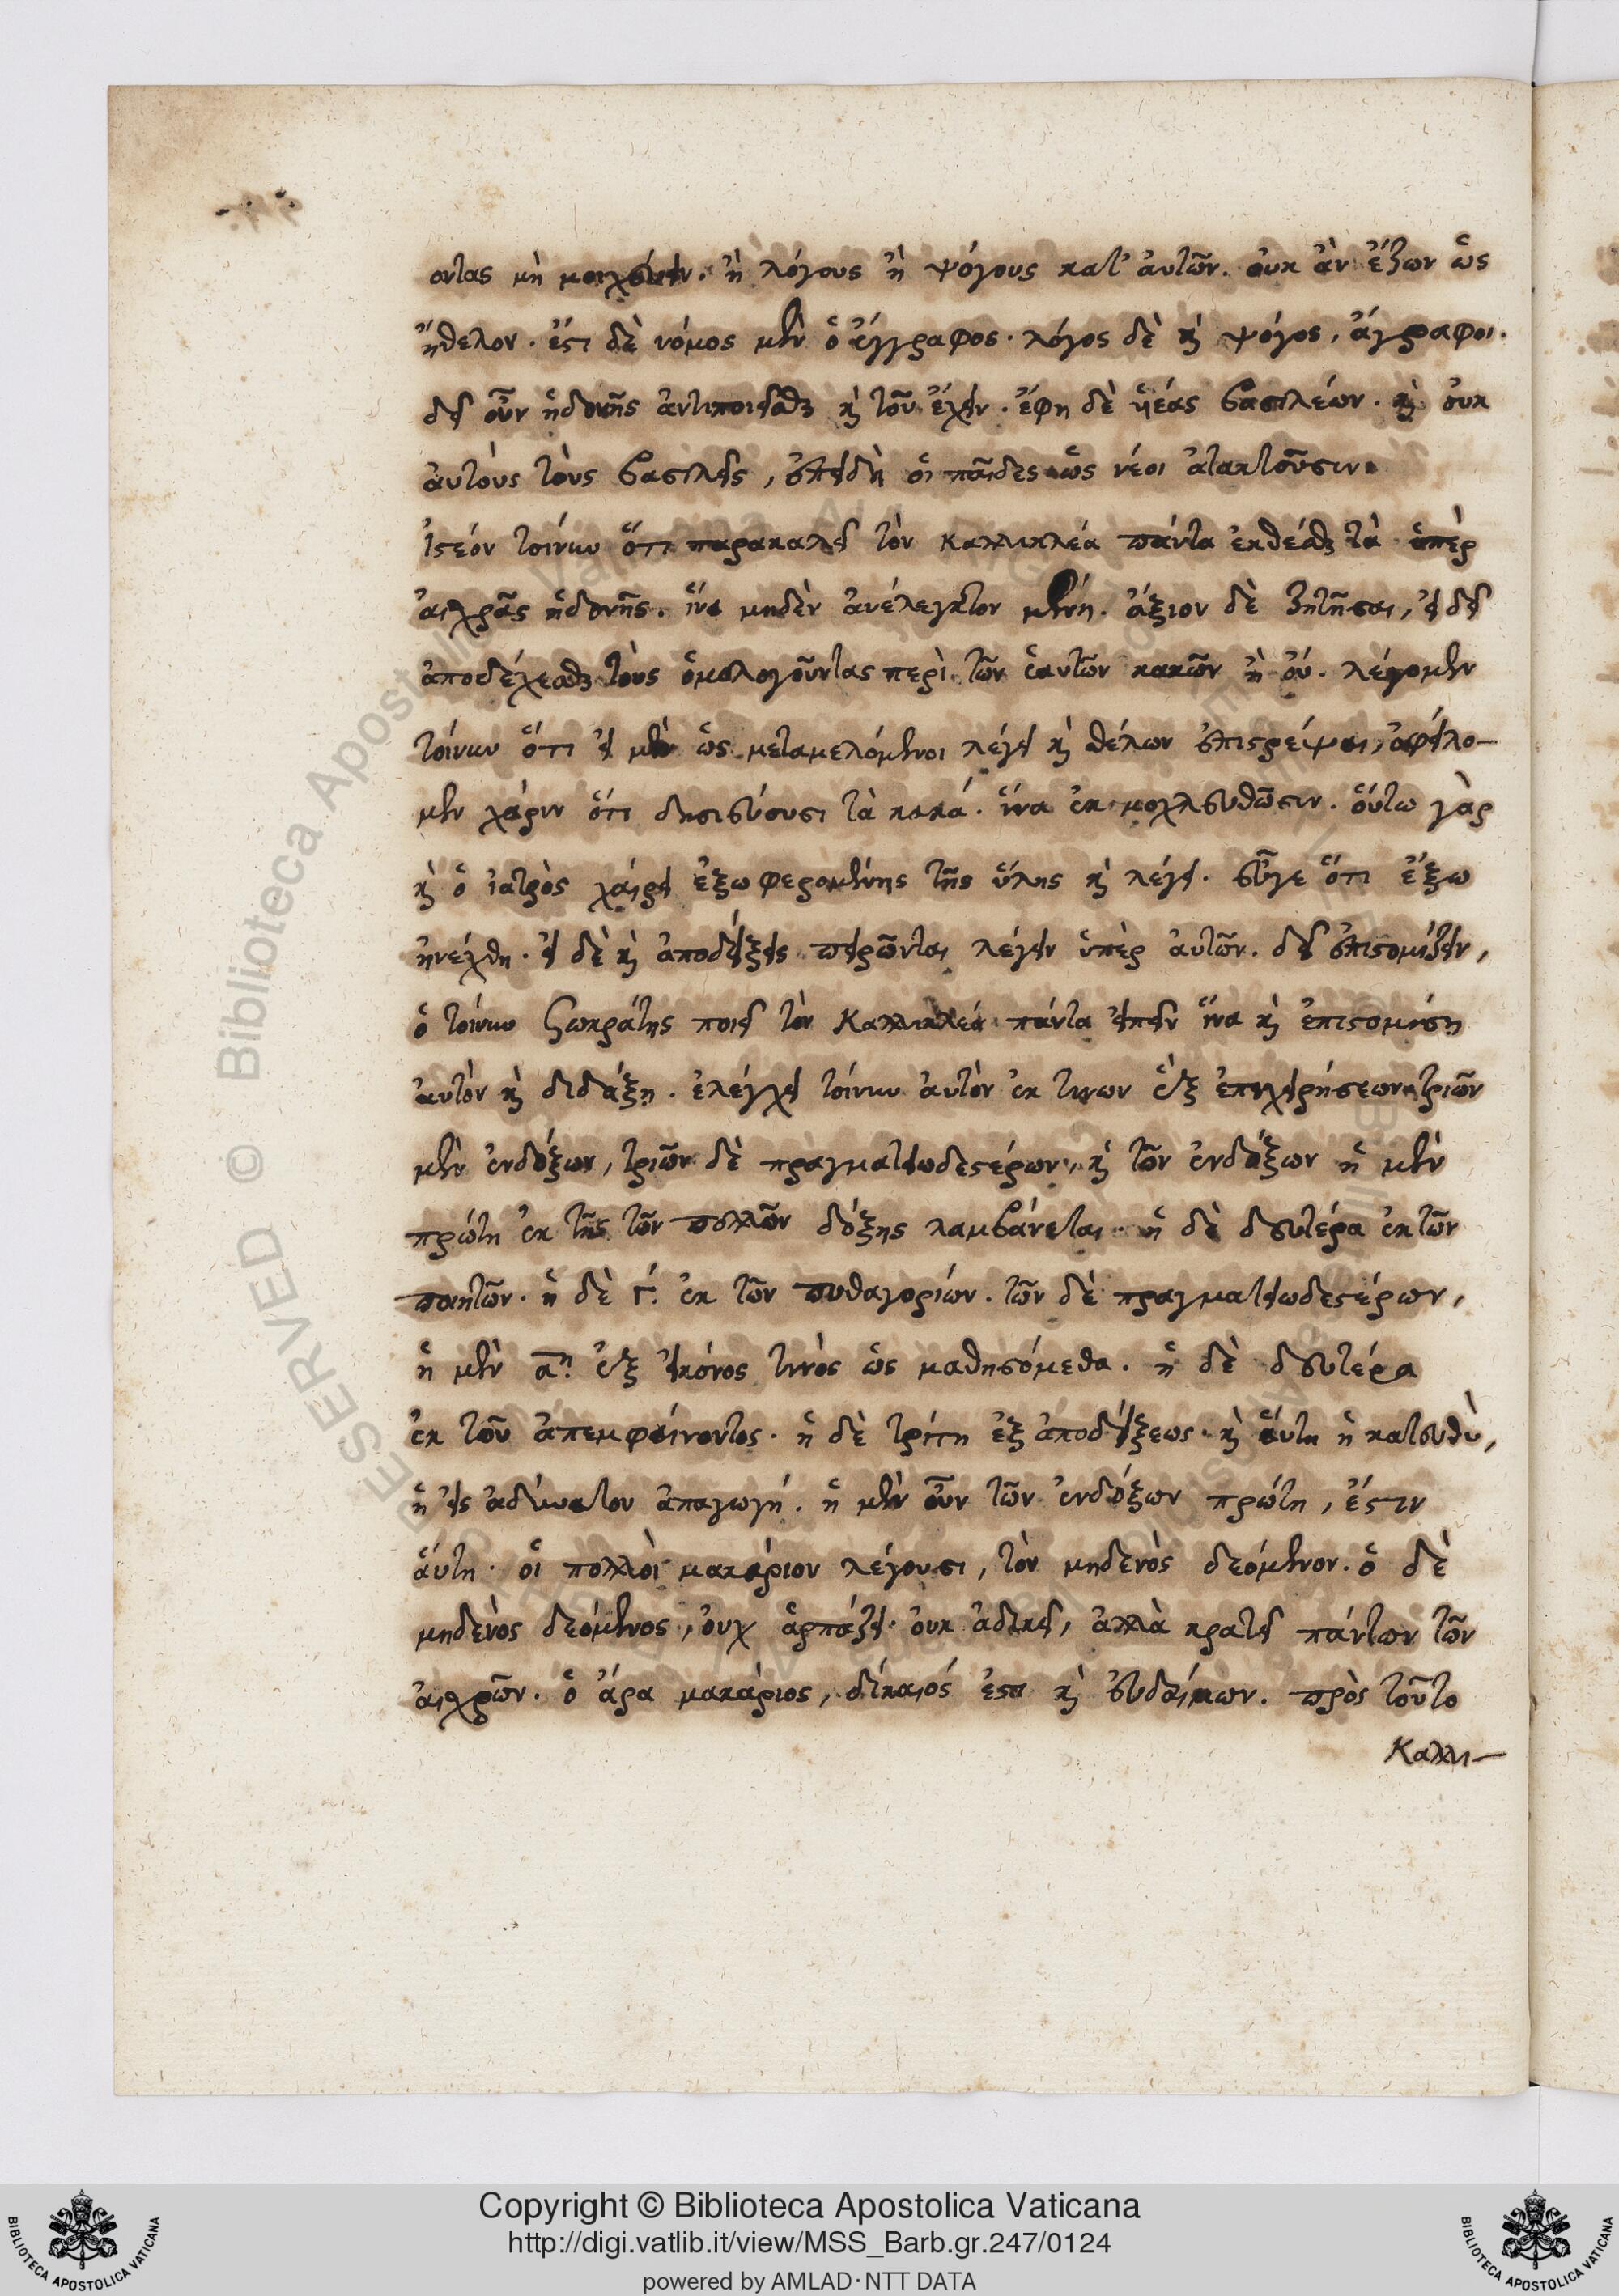 οντας μὴ μοιχεύειν. ἢ λόγους ἢ ψόγους κατ' αὐτῶν. οὐκ ἂν ἔζων ὡς
ἤθελον. ἔστι δὲ νόμος μὲν ὁ ἔγγραφος. λόγος δὲ καὶ ψόγος, ἄγραφοι.
δεῖ οὖν ἡδονῆς ἀντιποιεῖσθαι καὶ τοῦ ἔχειν. ἔφη δὲ υἱέας βασιλέων. καὶ οὐκ
αὐτοὺς τοὺς βασιλεῖς, ἐπειδὴ οἱ παῖδες ὡς νέοι ἀτακτοῦσιν.
ἰστέον τοίνυν ὅτι παρακαλεῖ τὸν Καλλικλέα πάντα ἐκθέσθαι τὰ ὑπὲρ
αἰσχρᾶς ἡδονῆς. ἵνα μηδὲν ἀνέλεγκτον μένῃ. ἄξιον δὲ ζητῆσαι, εἰ δεῖ
ἀποδέχεσθαι τοὺς ὁμολογοῦντας περὶ τῶν ἑαυτῶν κακῶν ἢ οὔ. λέγομεν
τοίνυν ὅτι εἰ μὲν ὡς μεταμελόμενοι λέγει καὶ θέλων ἐπιστρέψαι, ὀφείλο-
μεν χάριν ὅτι δημοσιεύουσι τὰ κακά. ἵνα ἐκμοχλευθῶσιν. οὕτω γὰρ
καὶ ὁ ἰατρὸς χαίρει ἐξωφερομένης τῆς ὕλης καὶ λέγει. εὖγε ὅτι ἔξω
ἠνέχθη. εἰ δὲ καὶ ἀποδείξεις πειρῶνται λέγειν ὑπὲρ αὐτῶν. δεῖ ἐπιστομίζειν,
ὁ τοίνυν Σωκράτης ποιεῖ τὸν Καλλικλέα πάντα εἰπεῖν ἵνα καὶ ἐπιστομίσῃ
αὐτὸν καὶ διδάξῃ. ἐλέγχει τοίνυν αὐτὸν ἐκ τινων ἓξ ἐπιχειρήσεων, τριῶν
μὲν ἐνδόξων, τριῶν δὲ πραγματειωδεστέρων, καὶ τῶν ἐνδόξων ἡ μὲν
πρώτη ἐκ τῆς τῶν πολλῶν δόξης λαμβάνεται. ἡ δὲ δευτέρα ἐκ τῶν
ποιητῶν. ἡ δὲ γ. ἐκ τῶν πυθαγορίων. τῶν δὲ πραγματειωδεστέρων,
ἡ μὲν αη. ἐξ εἰκόνος τινὸς ὡς μαθησόμεθα. ἡ δὲ δευτέρα
ἐκ τοῦ ἀπεμφαίνοντος. ἡ δὲ τρίτη ἐξ ἀποδείξεως. καὶ αὕτη ἡ κατευθὺ,
ἡ εἰς ἀδύνατον ἀπαγωγή. ἡ μὲν οὖν τῶν ἐνδόξων πρώτη, ἔστιν
αὕτη. οἱ πολλοὶ μακάριον λέγουσι, τὸν μηδενὸς δεόμενον. ὁ δὲ
μηδενὸς δεόμενος, οὐχ ἁρπάζει. οὐκ ἀδικεῖ, ἀλλὰ κρατεῖ πάντων τῶν
αἰσχρῶν. ὁ ἄρα μακάριος, δίκαιός ἐστι καὶ εὐδαίμων. πρὸς τοῦτο
Καλλι-
Copyright © Biblioteca Apostolica Vaticana
http://digi.vatlib.it/view/MSS_Barb.gr.247/0124
powered by AMLAD·NTT DATA
BIBLIOTECA APOSTOLICA VATICANA
BIBLIOTECA APOSTOLICA VATICANA